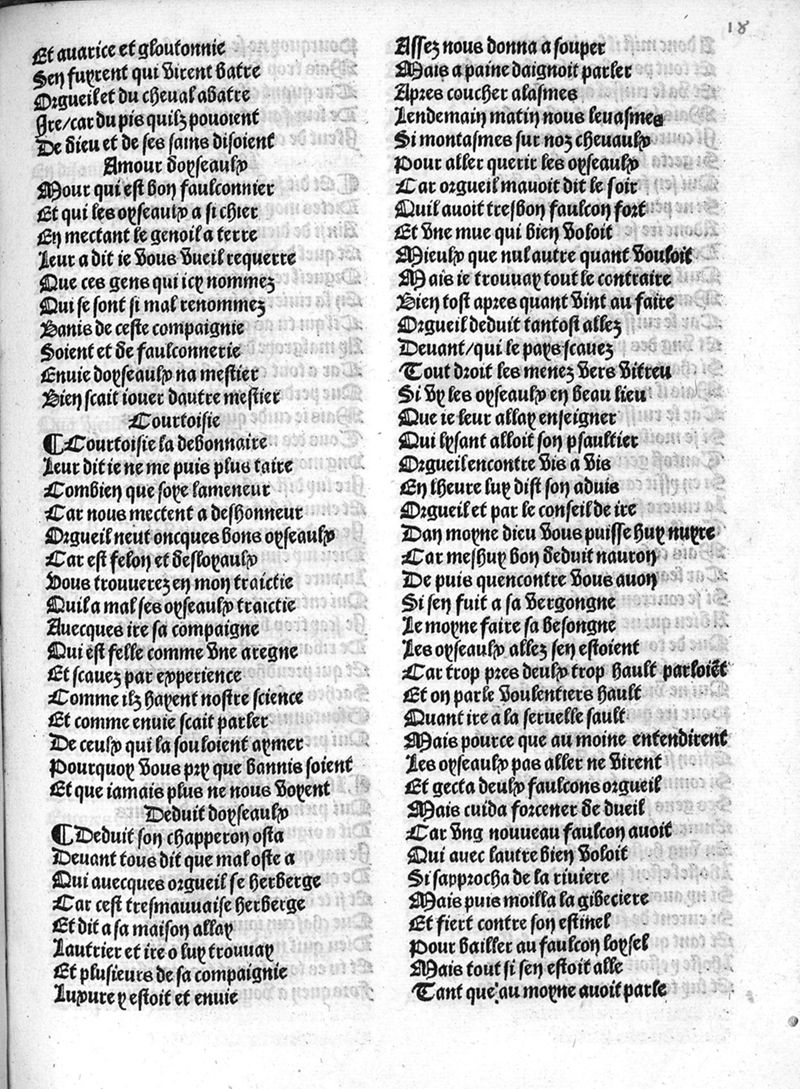 18
Et auarice et gloutonnie
Sen fuyrent qui virent batre
Orgueil et du cheual abatre
Ire/car du pis quilz pouoient
De dieu et de ses sains disoient
Amour doyseaulx
Amour qui est bon faulconnier
Et qui les oyseaulx a si chier
En mectant le genoil a terre
Leur a dit ie vous vueil requerre
Que ces gens qui icy nommez
Qui se sont si mal renommez
Banis de ceste compaignie
Soient et de faulconnerie
Enuie doyseaulx na mestier
Bien scait iouer dautre mestier
Courtoisie
¶Courtoisie la debonnaire
Leur dit ie ne me puis plus taire
Combien que soye lameneur
Car nous mectent a deshonneur
Orgueil neut oncques bons oyseaulx
Car est felon et desloyaulx
Vous trouuerez en mon traictie
Quil a mal ses oyseaulx traictie
Auecques ire sa compaigne
Qui est felle comme vne aregne
Et scauez par experience
Comme ilz hayent nostre science
Et comme enuie scait parler
De ceulx qui la souloient aymer
Pourquoy vous pry que bannis soient
Et que iamais plus ne nous voyent
Deduit doyseaulx
¶Deduit son chapperon osta
Deuant tous dit que mal oste a
Qui auecques orgueil se herberge
Car cest tresmauuaise herberge
Et dit a sa maison allay
Lautrier et ire o luy trouuay
Et plusieurs de sa compaignie
Luxure y estoit et enuie
Assez nous donna a souper
Mais a paine daignoit parler
Apres coucher alasmes
Lendemain matin nous leuasmes
Si montasmes sur noz cheuaulx
Pour aller querir les oyseaulx
Car orgueil mauoit dit le soir
Quil auoit tresbon faulcon fort
Et vne mue qui bien voloit
Mieulx que nul autre quant vouloit
Mais ie trouuay tout le contraire
Bien tost apres quant vint au faire
Orgueil deduit tantost allez
Deuant/qui le pays scauez
Tout droit les menez vers vitreu
Si vy les oyseaulx en beau lieu
Que ie leur allay enseigner
Qui lysant alloit son psaultier
Orgueil encontre vis a vis
En lheure luy dist son aduis
Orgueil et par le conseil de ire
Dan moyne dieu vous puisse huy nuyre
Car meshuy bon deduit nauron
De puis quencontre vous auon
Si sen fuit a sa vergongne
Le moyne faire sa besongne
Les oyseaulx allez sen estoient
Car trop pres deulx trop hault parloiẽt
Et on parle voulentiers hault
Quant ire a la seruelle sault
Mais pource que au moine entendirent
Les oyseaulx pas aller ne virent
Et gecta deulx faulcons orgueil
Mais cuida forcener de dueil
Car vng nouueau faulcon auoit
Qui auec lautre bien voloit
Si sapprocha de la riuiere
Mais puis moilla la gibeciere
Et fiert contre son estinel
Pour bailler au faulcon loysel
Mais tout si sen estoit alle
Tant que au moyne auoit parle